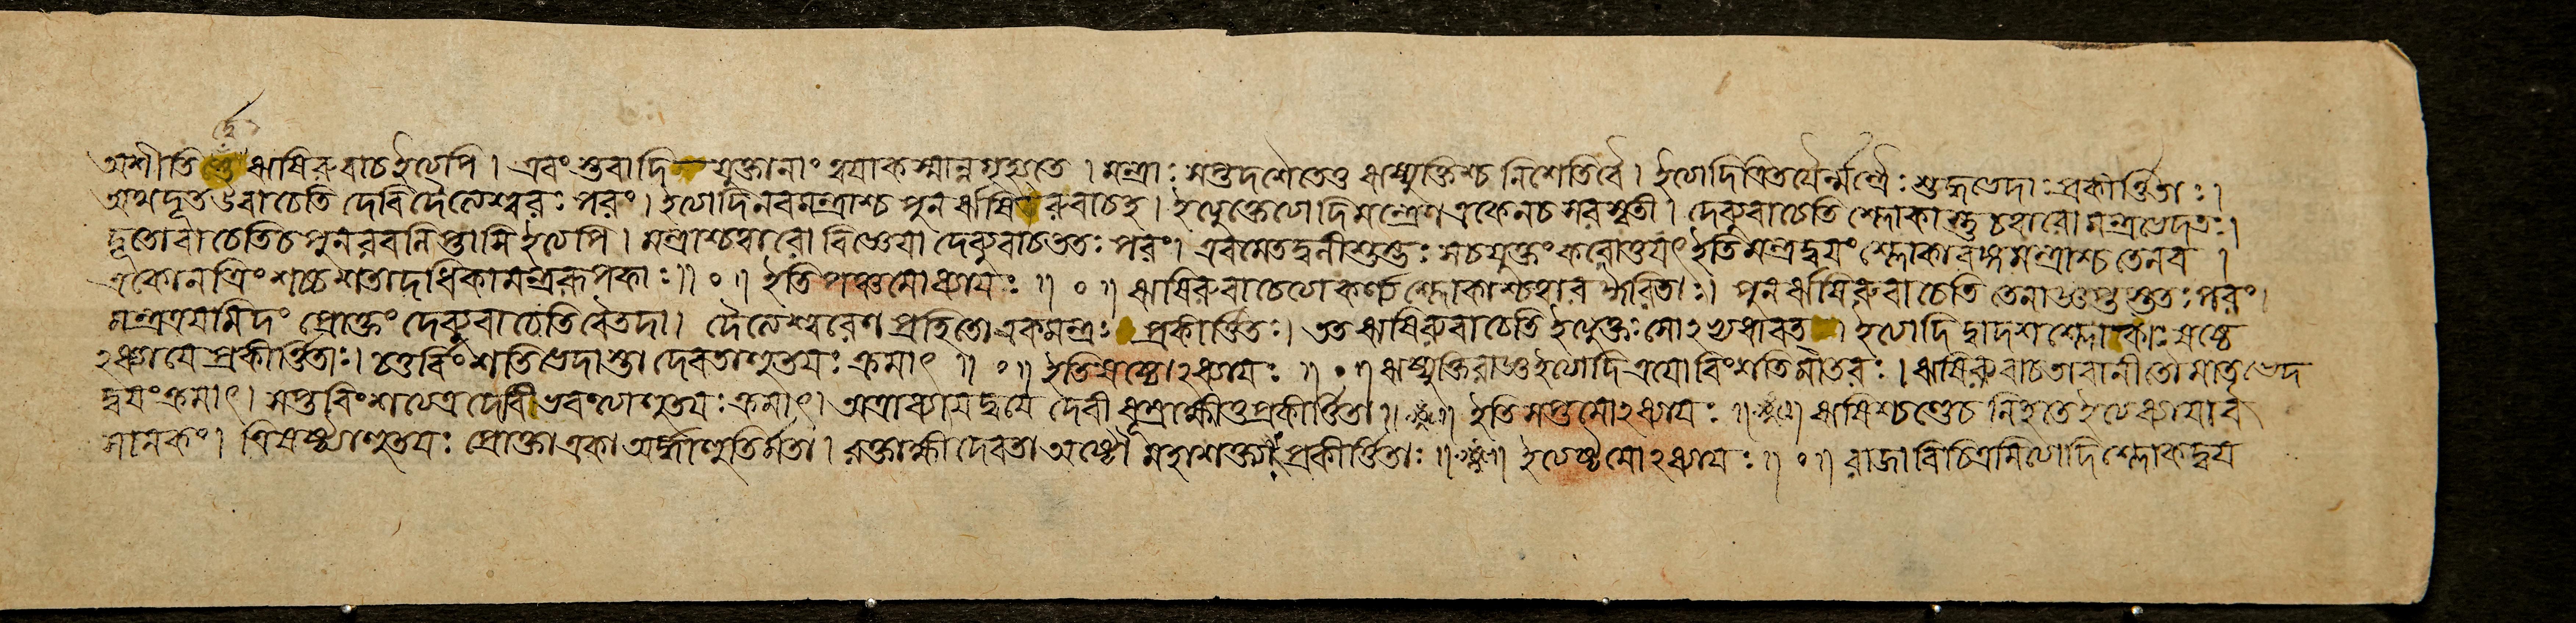 অশীতি ঋষিরুবাচ ইত্যপি । এবং স্তবাদি যুক্তানাং ত্বয়াকস্মান্নগৃহ্যতে । মন্ত্রাঃ সপ্তদশৈতেতু ঋষ্যুক্তিশ্চ নিশেতিবৈ । ইত্যেদিত্রিতয়ৈর্ম্মন্ত্রৈঃ শুম্ভভেদাঃ প্রকীর্ত্তিতাঃ ।
অথদূতউবাচেতি দেবিদৈত্যেশ্বরঃ পরং । ইত্যাদিনবমন্ত্রাশ্চ পুনর্ঋষিরুবাচহ । ইত্যুক্তেত্যাদিমন্ত্রেণ একেনচ সরস্বতী । দেব্যুবাচেতি শ্লোকাস্তু চত্বারো মন্ত্রভেদতঃ ।
দূতোবাচেতিচ পুনরবলিপ্তাসি ইত্যপি । মন্ত্রাশ্চত্বারো বিজ্ঞেয়া দেব্যুবাচততঃ পরং । এবমেতদ্বলীশুম্ভঃ সচযুক্তংকরোতুযৎ ইতিমন্ত্রদ্বয়ং শ্লোকাবহ্মমন্ত্রাশ্চ তেনব ।
একোনত্রিংশচ্চ শতাদধিকামন্ত্ররূপকাঃ ॥ ০ ॥ ইতি পঞ্চমোধ্যায়ঃ ॥ ০ ॥ ঋষিরুবাচেত্যেকর্ণ্য শ্লোকাশ্চত্বার ঈরিতাঃ । পুনর্ঋষিরুবাচেতি তেনাজ্ঞপ্তস্ততঃ পরং ।
মন্ত্রত্রয়মিদং প্রোক্তং দেব্যুবাচেতিবৈতদা । দৈত্যেশ্বরেণ প্রহিতো একমন্ত্রঃ প্রকীর্ত্তিতঃ । তত ঋষিরুবাচেতি ইত্যুক্তঃ সোঽভ্যধাবত । ইত্যাদি দ্বাদশ শ্লোকাঃ ষষ্ঠে
ঽধ্যায়ে প্রকীর্ত্তিতাঃ । চতুর্বিংশতিভেদাস্তা দেবতাশ্রুতয়ঃ ক্রমাৎ ॥ ০ ॥ ইতিষষ্ঠোঽধ্যায়ঃ ॥ ০ ॥ ঋষ্যুক্তিরাজ্ঞ ইত্যাদি ত্রয়োবিংশতির্মাতরঃ । ঋষিরুবাচতাবানীতৌ মাতৃভেদ
দ্বয়ংক্রমাৎ । সপ্তবিংশত্যেত্র দেবী এবংস্যেশ্রুতয়ঃ ক্রমাৎ । অত্রাধ্যায়দ্বয়ে দেবী ধূম্রাক্ষীতু প্রকীর্ত্তিতা ॥ ইতি সপ্তমোঽধ্যায়ঃ ॥ ঋষিশ্চণ্ডেচ নিহতে ইত্যধ্যায়াব
সানকং । ত্রিষষ্ঠ্যাশ্রুতয়ঃ প্রোক্তা একা অর্দ্ধাশ্রুতির্মতা । রক্তাক্ষী দেবতা অষ্টৌ মহাশক্ত্যঃ প্রকীর্ত্তিতাঃ ॥ ইত্যষ্টমোঽধ্যায়ঃ ॥ ০ ॥ রাজা বিচিত্রমিত্যাদি শ্লোকদ্বয়